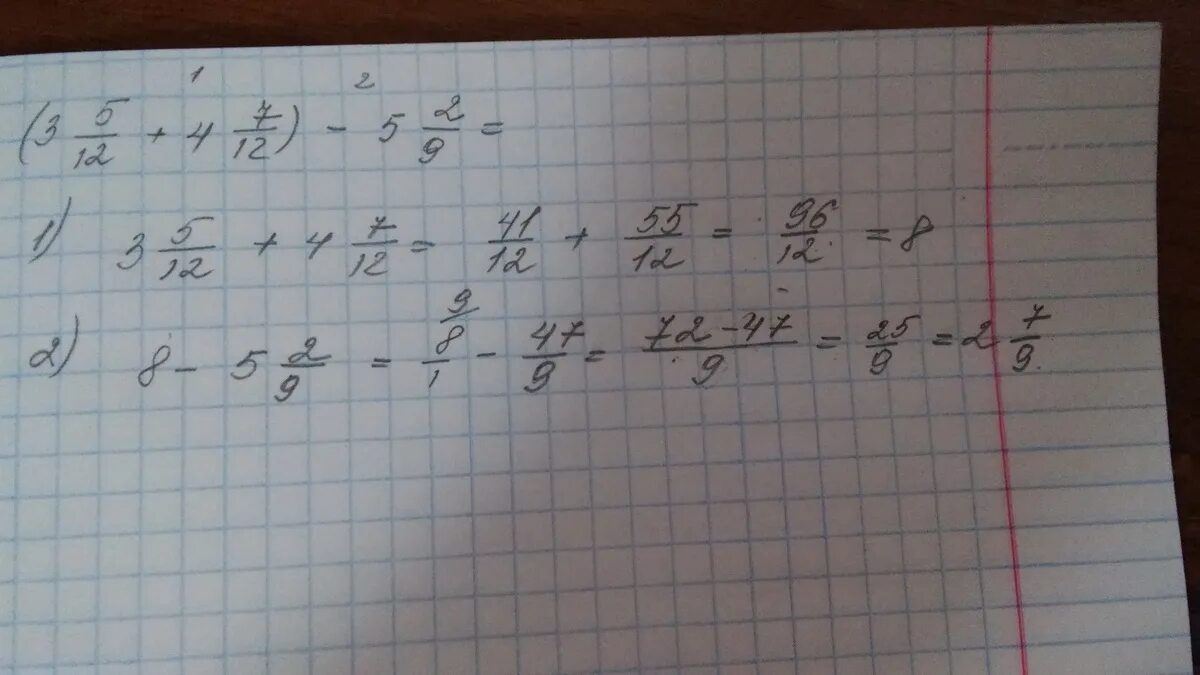 1 2
(3 5/12 + 4 7/12) - 5 2/9 =
1) 3 5/12 + 4 7/12 = 41/12 + 55/12 = 96/12 = 8
2) 8 - 5 2/9 = 9/ 8/1 - 47/9 = 72-47/9 = 25/9 = 2 7/9